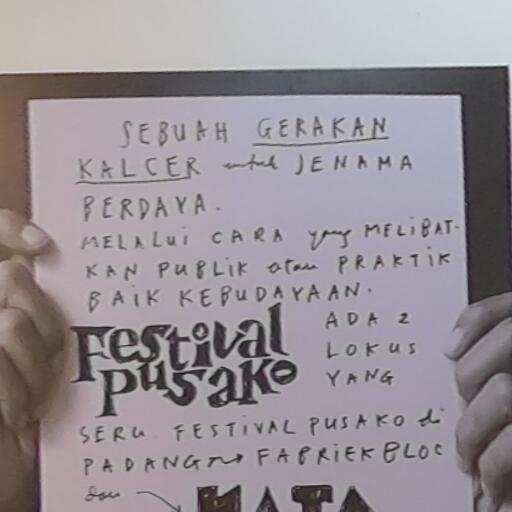 SEBUAH GERAKAN
KALCER untuk JENAMA
BERDAYA.
MELALUI CARA yang MELIBAT-
KAN PUBLIK atau PRAKTIK
BAIK KEBUDAYAAN.
Festival
PUSAKO
ADA 2
LOKUS
YANG
SERU. FESTIVAL PUSAKO di
PADANG → FABRIEK BLOC
dan →
MATA